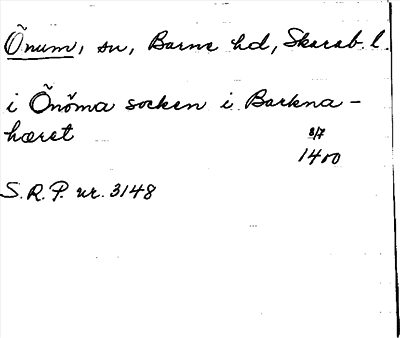 Õnum, sn, Barne hd, Skarab. l.
i Õnöma socken i Barkna-
hæret
8/7
1400
S.R.P. nr. 3148